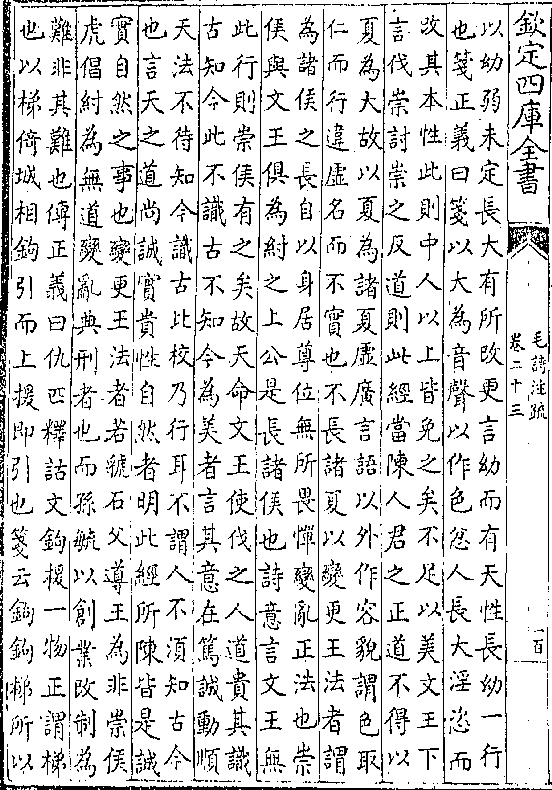 欽定四庫全書
毛詩注疏
卷二十三
一百
以幼弱未定長大有所改更言幼而有天性長幼一行
也箋正義曰箋以大為音聲以作色忿人長大淫恣而
改其本性此則中人以上皆免之矣不足以美文王下
言伐崇討崇之反道則此經當陳人君之正道不得以
夏為大故以夏為諸夏虛廣言語以外作容貌謂色取
仁而行違虛名而不實也不長諸夏以變更王法者謂
為諸侯之長自以身居尊位無所畏憚變亂正法也崇
侯與文王俱為紂之上公是長諸侯也詩意言文王無
此行則崇侯有之矣故天命文王使伐之人道貴其識
古知今此不識古不知今為美者言其意在篤誠動順
天法不待知今識古比校乃行耳不謂人不須知古今
也言天之道尚誠實貴性自然者明此經所陳皆是誠
實自然之事也變更王法者若虢石父導王為非崇侯
虎倡紂為無道變亂典刑者也而孫毓以創業改制為
難非其難也傳正義曰仇匹釋詁文鉤援一物正謂梯
也以梯倚城相鉤引而上援即引也箋云鉤鉤梯所以